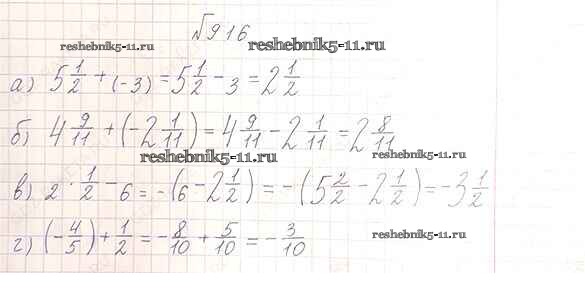 №916
reshebnik5-11.ru
reshebnik5-11.ru
а) 5 1/2 + (-3) = 5 1/2 - 3 = 2 1/2
reshebnik5-11.ru
б) 4 9/11 + (-2 1/11) = 4 9/11 - 2 1/11 = 2 8/11
reshebnik5-11.ru
reshebnik5-11.ru
в) 2 · 1/2 - 6 = -(6 - 2 1/2) = -(5 2/2 - 2 1/2) = -3 1/2
г) (-4/5) + 1/2 = -8/10 + 5/10 = -3/10
reshebnik5-11.ru